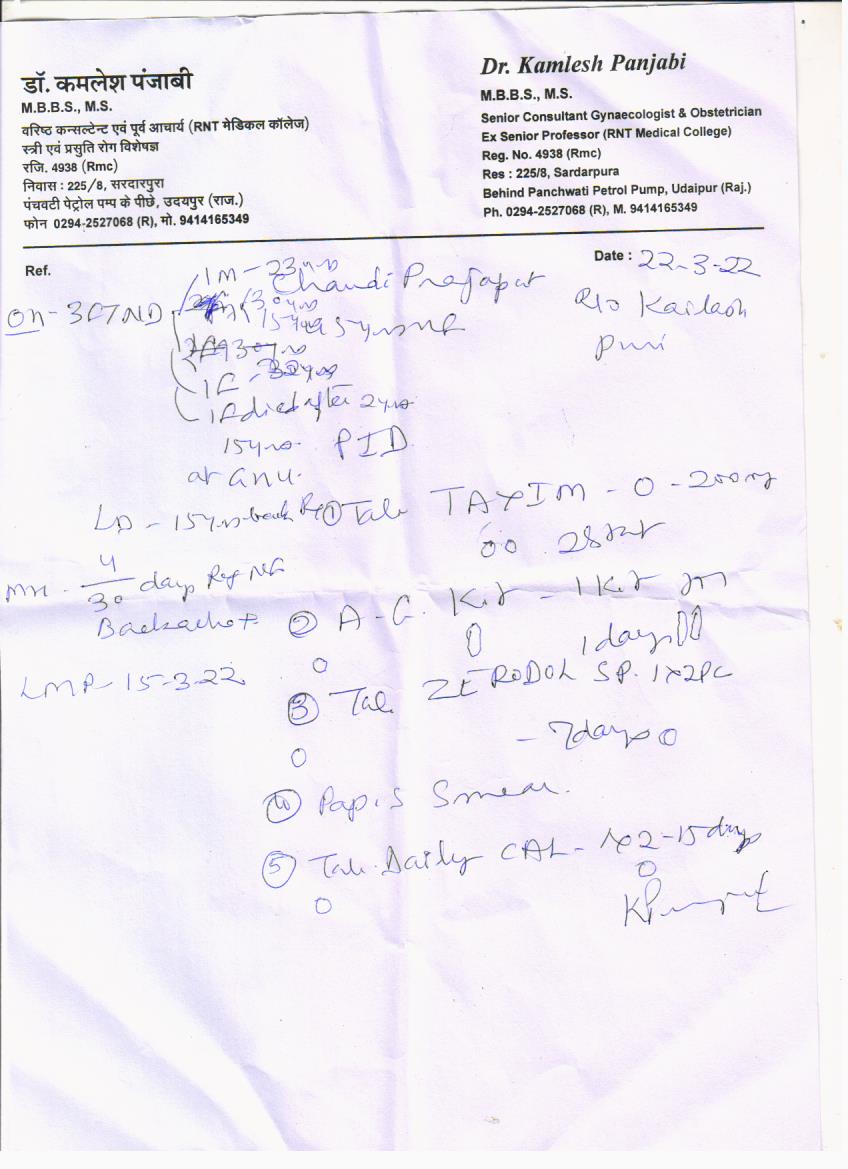 डॉ. कमलेश पंजाबी
M.B.B.S., M.S.
वरिष्ठ कन्सल्टेन्ट एवं पूर्व आचार्य (RNT मेडिकल कॉलेज)
स्त्री एवं प्रसुति रोग विशेषज्ञ
रजि. 4938 (Rmc)
निवास : 225/8, सरदारपुरा
पंचवटी पेट्रोल पम्प के पीछे, उदयपुर (राज.)
फोन 0294-2527068 (R), मो. 9414165349
Dr. Kamlesh Panjabi
M.B.B.S., M.S.
Senior Consultant Gynaecologist & Obstetrician
Ex Senior Professor (RNT Medical College)
Reg. No. 4938 (Rmc)
Res : 225/8, Sardarpura
Behind Panchwati Petrol Pump, Udaipur (Raj.)
Ph. 0294-2527068 (R), M. 9414165349
Ref.
Date : 22-3-22
Chandi Prajapat
R/o Kailash
puri
1M - 23yrs
1F - 32yrs
1F died after 2yrs
15yrs. PID
LD - 15yrs back
① Tab TAXIM - O - 200mg
28 tab
4/30 days Reg
Backache +
② A-G. Kit - 1 Kit
1 days
LMP - 15-3-22
③ Tab. ZERODOL SP. 1x2PC
- 7days
④ Pap.s Smear.
⑤ Tab. Daily CAL - 1x2 - 15 days